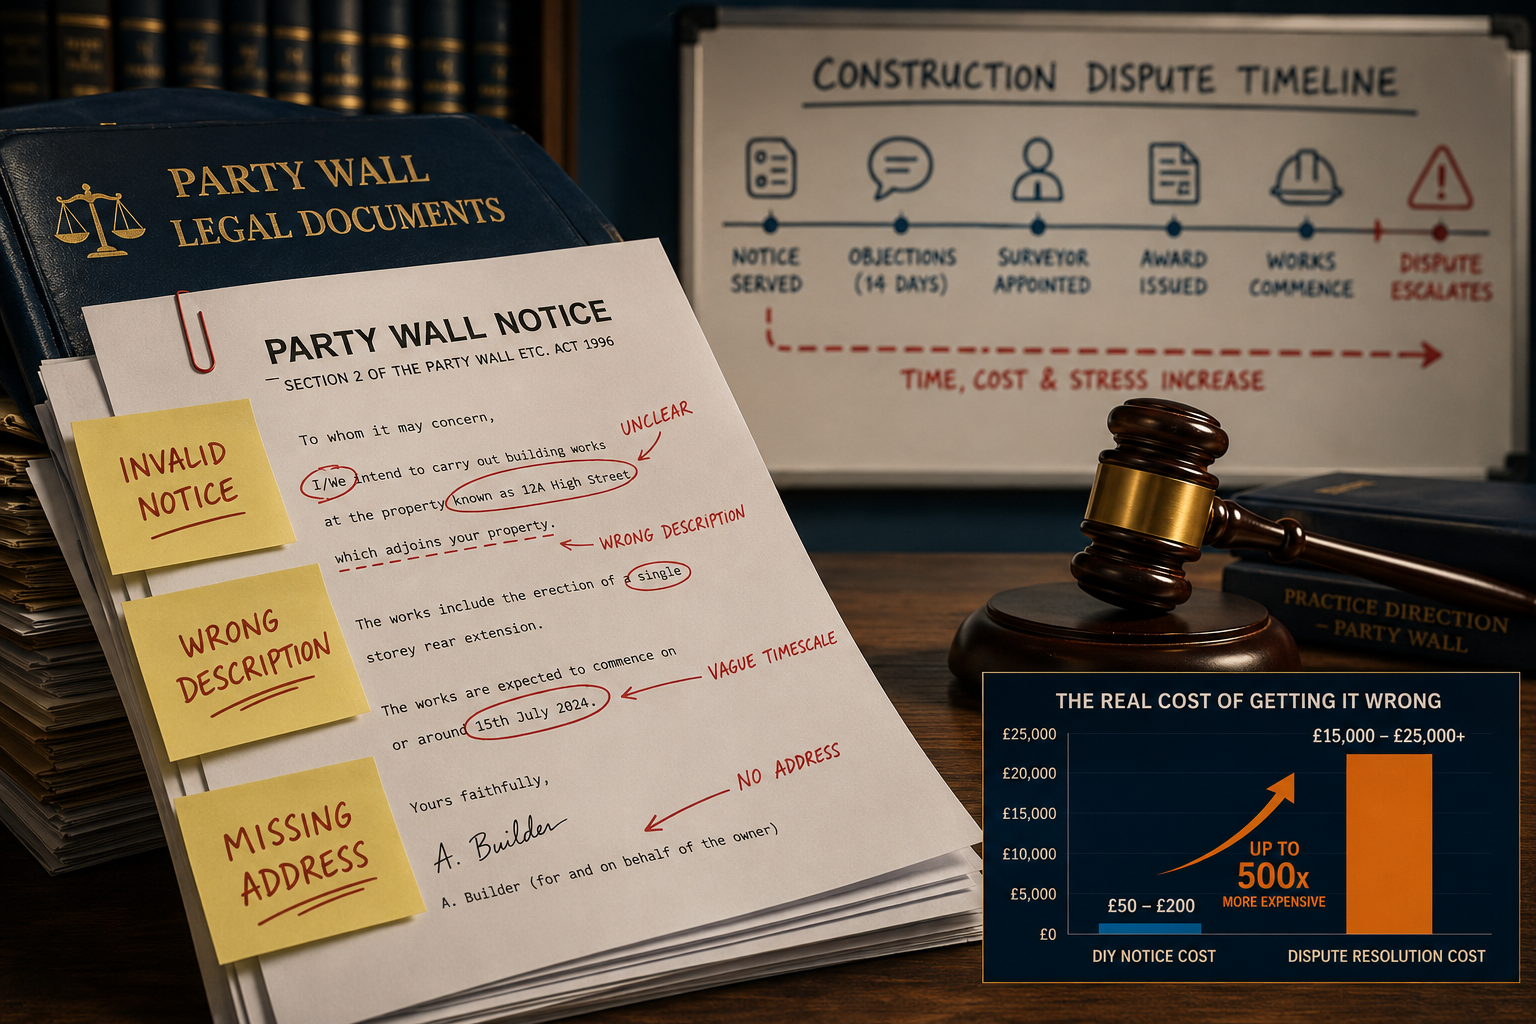 PARTY WALL
LEGAL DOCUMENTS
PARTY WALL NOTICE
SECTION 2 OF THE PARTY WALL ETC. ACT 1996
To whom it may concern,
UNCLEAR
I/We intend to carry out building works
at the property known as 12A High Street
which adjoins your property.
WRONG DESCRIPTION
The works include the erection of a single
storey rear extension.
The works are expected to commence on
or around 15th July 2024.
VAGUE TIMESCALE
Yours faithfully,
NO ADDRESS
A. Builder
A. Builder (for and on behalf of the owner)
INVALID
NOTICE
WRONG
DESCRIPTION
MISSING
ADDRESS
CONSTRUCTION DISPUTE TIMELINE
NOTICE
SERVED
OBJECTIONS
(14 DAYS)
SURVEYOR
APPOINTED
AWARD
ISSUED
WORKS
COMMENCE
DISPUTE
ESCALATES
TIME, COST & STRESS INCREASE
PRACTICE DIRECTION
– PARTY WALL
THE REAL COST OF GETTING IT WRONG
£25,000
£20,000
£15,000
£10,000
£5,000
£0
£50 – £200
UP TO
500x
MORE EXPENSIVE
£15,000 – £25,000+
DIY NOTICE COST
DISPUTE RESOLUTION COST